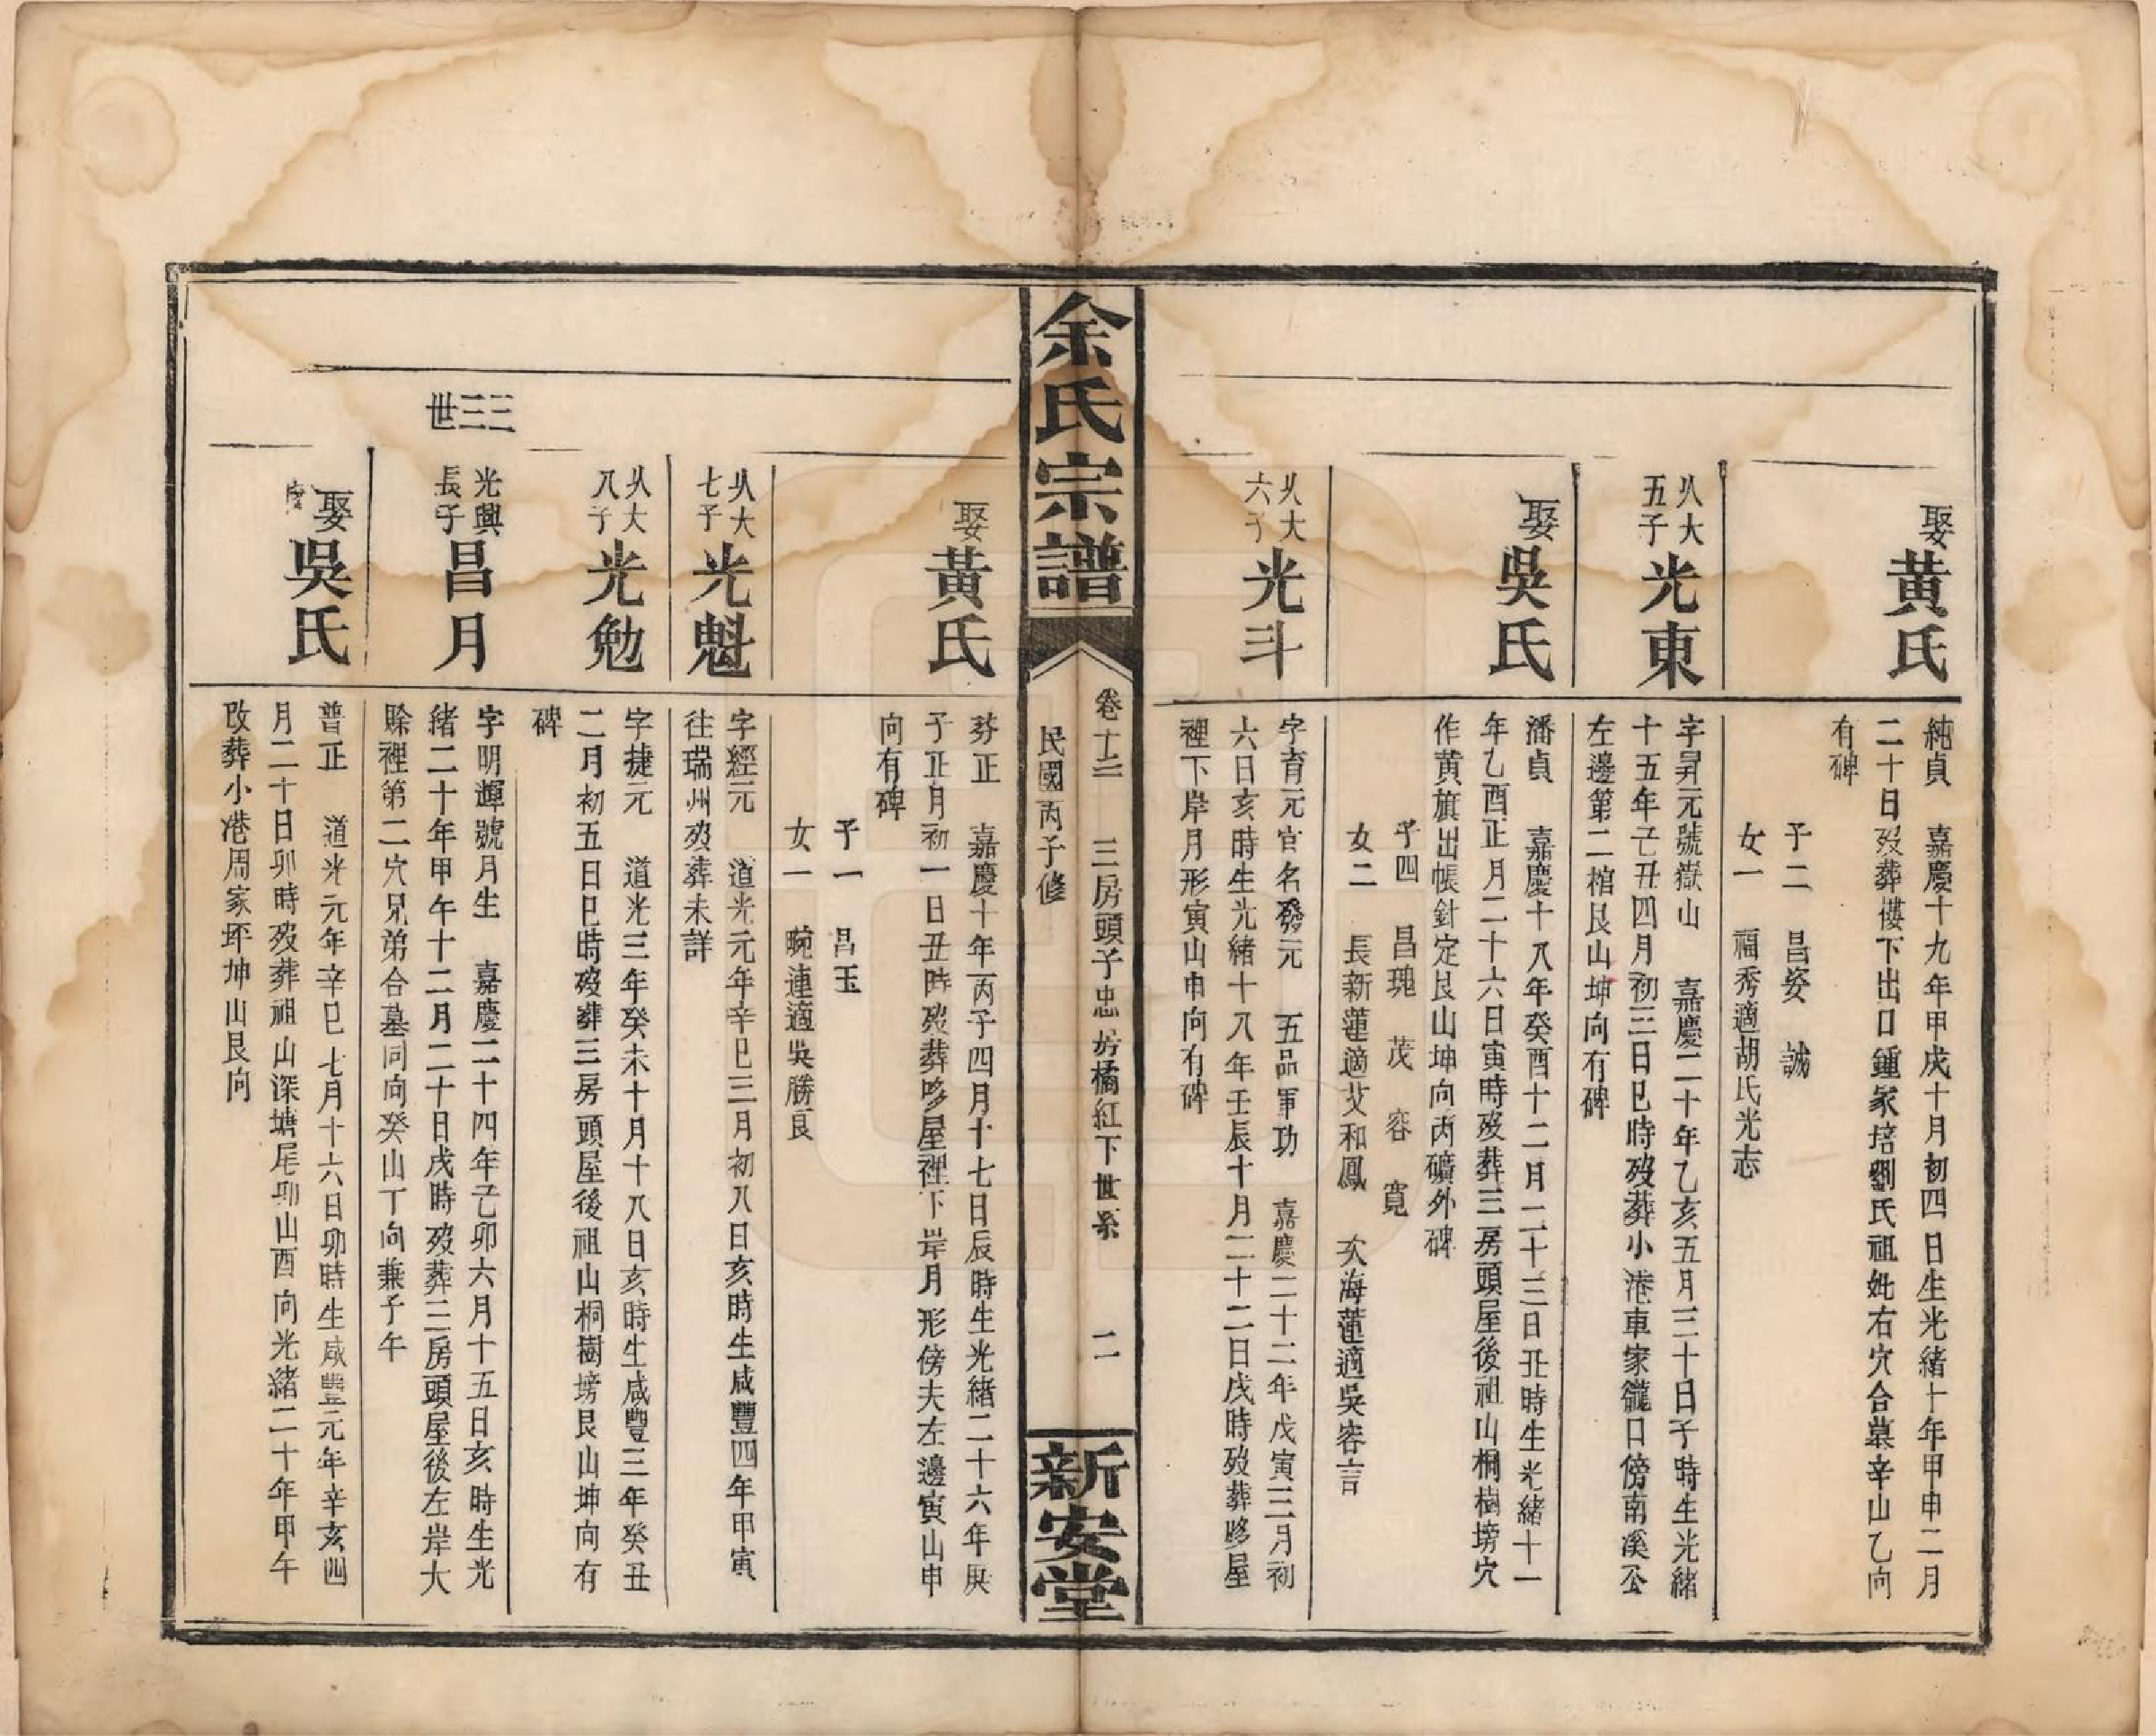 娶黃氏
純貞　嘉慶十九年甲戌十月初四日生光緒十年甲申二月
二十日歿葬樓下出口鍾家培劉氏祖妣右穴合墓辛山乙向
有碑
子二　昌姿　誠
女一　福秀適胡氏光志
从大五子光東
字昇元號嶽山　嘉慶二十年乙亥五月三十日子時生光緒
十五年己丑四月初三日巳時歿葬小港車家龍口傍南溪公
左邊第二棺艮山坤向有碑
娶吳氏
潘貞　嘉慶十八年癸酉十二月二十三日丑時生光緒十一
年乙酉正月二十六日寅時歿葬三房頭屋後祖山桐樹塝穴
作黃旗出帳針定艮山坤向丙礦外碑
子四　昌瑰　茂　容　寬
女二　長新蓮適艾和鳳　次海蓮適吳容言
从大六子光斗
字育元官名發元　五品軍功　嘉慶二十二年戊寅三月初
六日亥時生光緒十八年壬辰十月二十二日戌時歿葬眵屋
裡下岸月形寅山申向有碑
余氏宗譜
卷十三　三房頭子忠房橘紅下世系　二
民國丙子修
新安堂
娶黃氏
芬正　嘉慶十年丙子四月十七日辰時生光緒二十六年庚
子正月初一日丑時歿葬眵屋裡下岸月形傍夫左邊寅山申
向有碑
子一　昌玉
女一　晼連適吳勝良
从大七子光魁
字經元　道光元年辛巳三月初八日亥時生咸豐四年甲寅
往瑞州歿葬未詳
从大八子光勉
字捷元　道光三年癸未十月十八日亥時生咸豐三年癸丑
二月初五日巳時歿葬三房頭屋後祖山桐樹塝艮山坤向有
碑
三三世
光興長子昌月
字明輝號月生　嘉慶二十四年己卯六月十五日亥時生光
緒二十年甲午十二月二十日戌時歿葬三房頭屋後左岸大
賖裡第二穴兄弟合墓同向癸山丁向兼子午
娶吳氏
普正　道光元年辛巳七月十六日卯時生咸豐元年辛亥四
月二十日卯時歿葬祖山深塘尾卯山酉向光緒二十年甲午
改葬小港周家坪坤山艮向